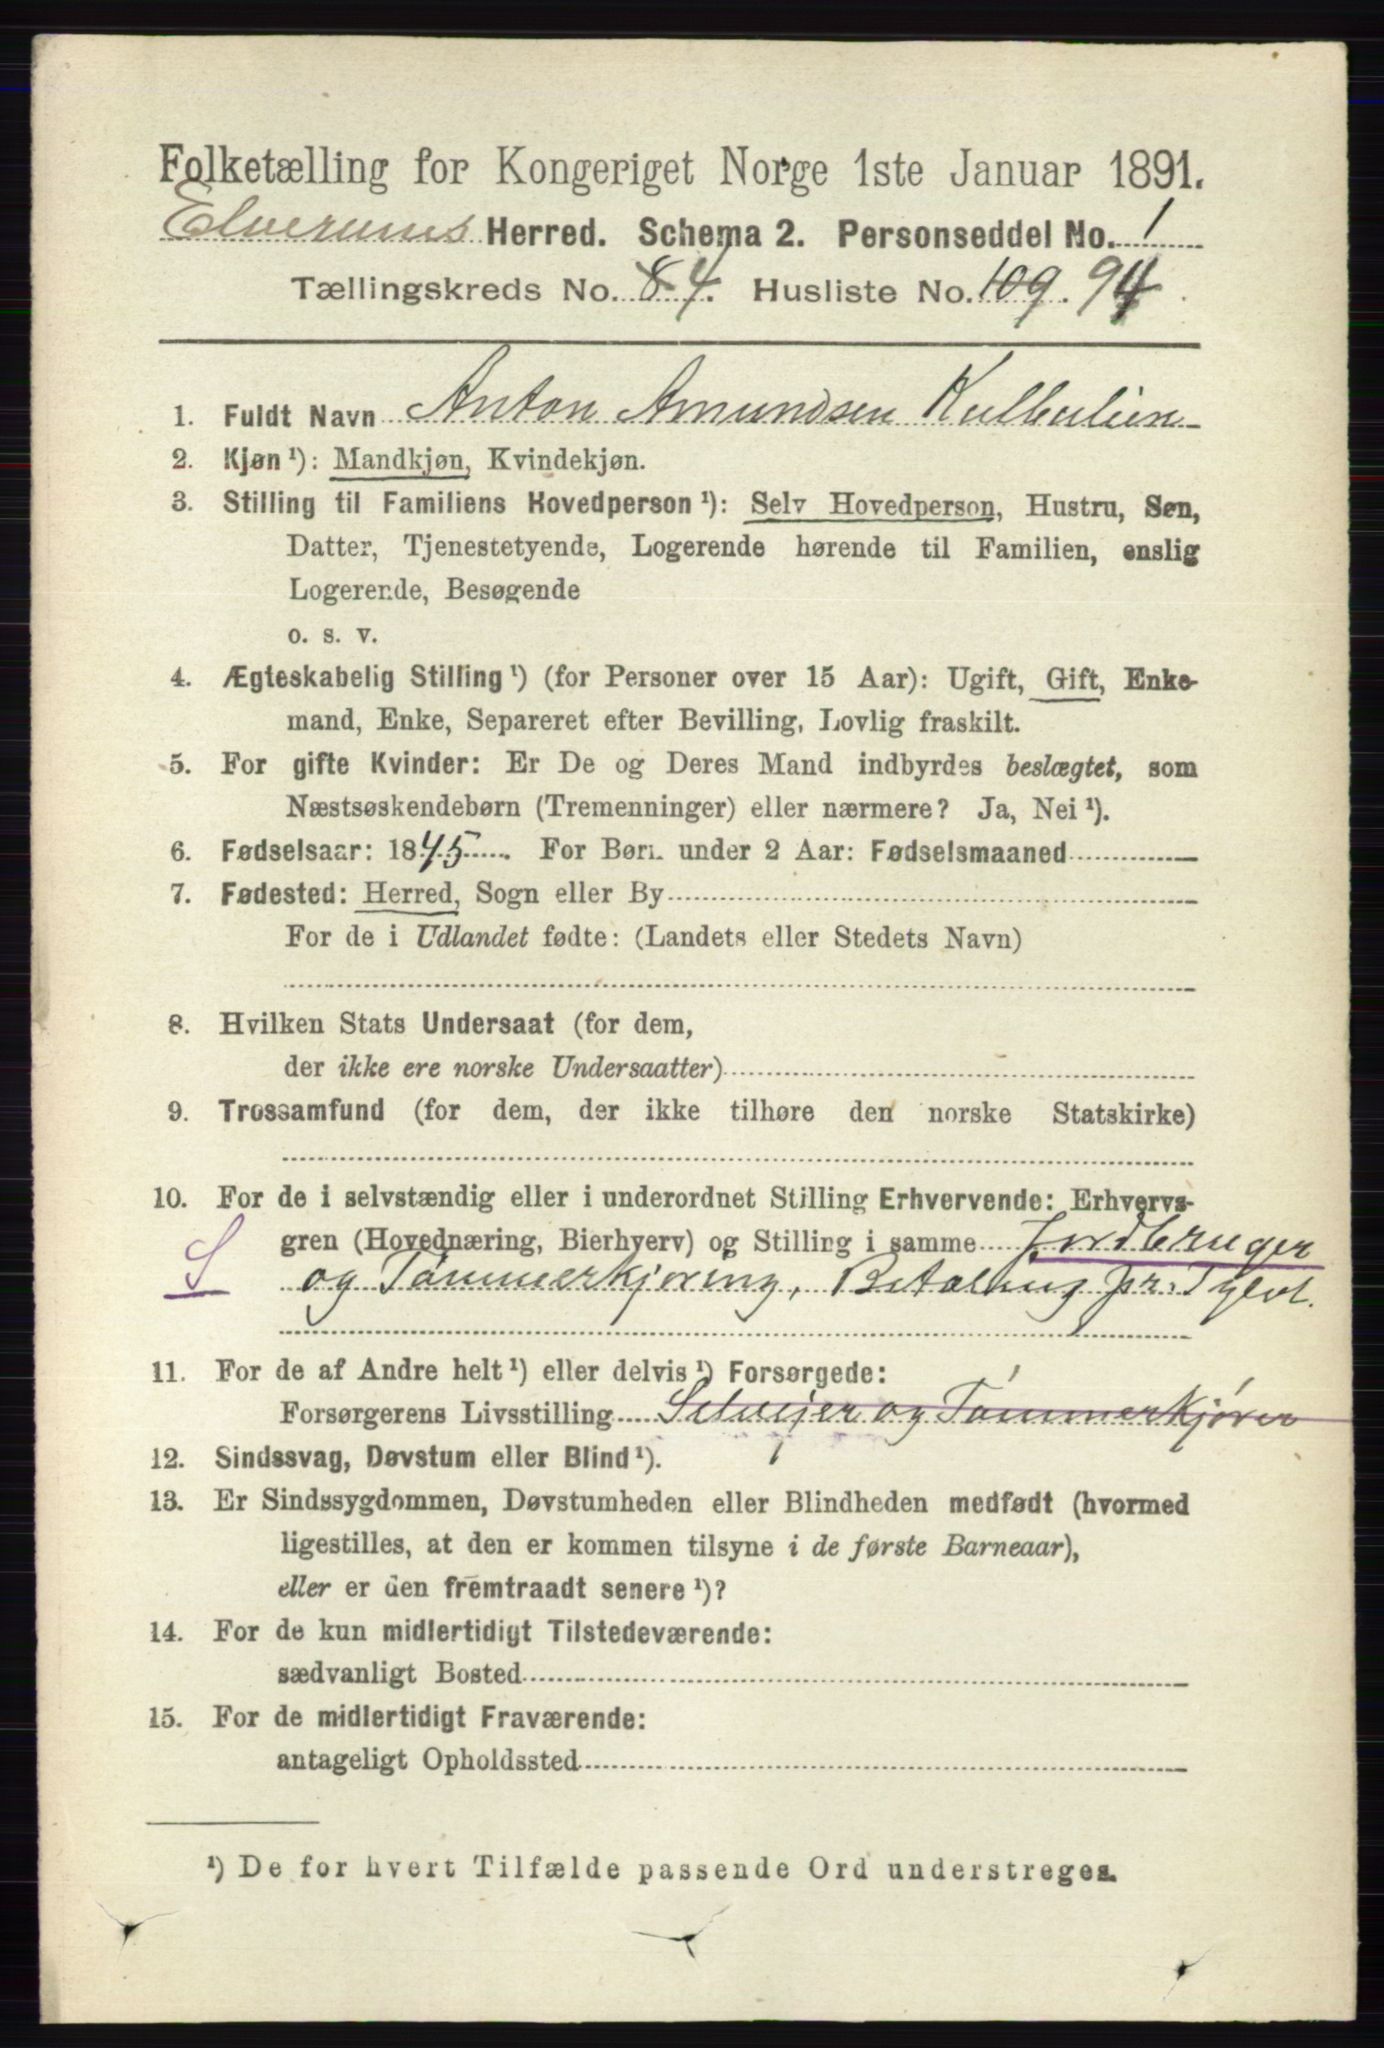 Folketælling for Kongeriget Norge 1ste Januar 1891.
Elverums Herred. Schema 2. Personseddel No. 1
Tællingskreds No. 8 4. Husliste No. 109. 94
1. Fuldt Navn Anton Amundsen
2. Kjøn ¹): Mandkjøn, Kvindekjøn.
3. Stilling til Familiens Hovedperson ¹): Selv Hovedperson, Hustru, Søn,
Datter, Tjenestetyende, Logerende hørende til Familien, enslig
Logerende, Besøgende
o. s. v.
4. Ægteskabelig Stilling ¹) (for Personer over 15 Aar): Ugift, Gift, Enke-
mand, Enke, Separeret efter Bevilling, Lovlig fraskilt.
5. For gifte Kvinder: Er De og Deres Mand indbyrdes beslægtet, som
Næstsøskendebørn (Tremenninger) eller nærmere? Ja, Nei ¹).
6. Fødselsaar: 1845. For Børn under 2 Aar: Fødselsmaaned
7. Fødested: Herred, Sogn eller By
For de i Udlandet fødte: (Landets eller Stedets Navn)
8. Hvilken Stats Undersaat (for dem,
der ikke ere norske Undersaatter)
9. Trossamfund (for dem, der ikke tilhøre den norske Statskirke)
10. For de i selvstændig eller i underordnet Stilling Erhvervende: Erhvervs-
gren (Hovednæring, Bierhverv) og Stilling i samme Jordbruger
S og Tømmerkjøring, Betaling pr. Tylvt.
11. For de af Andre helt ¹) eller delvis ¹) Forsørgede:
Forsørgerens Livsstilling Selveier og Tømmerkjører
12. Sindssvag, Døvstum eller Blind ¹).
13. Er Sindssygdommen, Døvstumheden eller Blindheden medfødt (hvormed
ligestilles, at den er kommen tilsyne i de første Barneaar),
eller er den fremtraadt senere ¹)?
14. For de kun midlertidigt Tilstedeværende:
sædvanligt Bosted
15. For de midlertidigt Fraværende:
antageligt Opholdssted
¹) De for hvert Tilfælde passende Ord understreges.